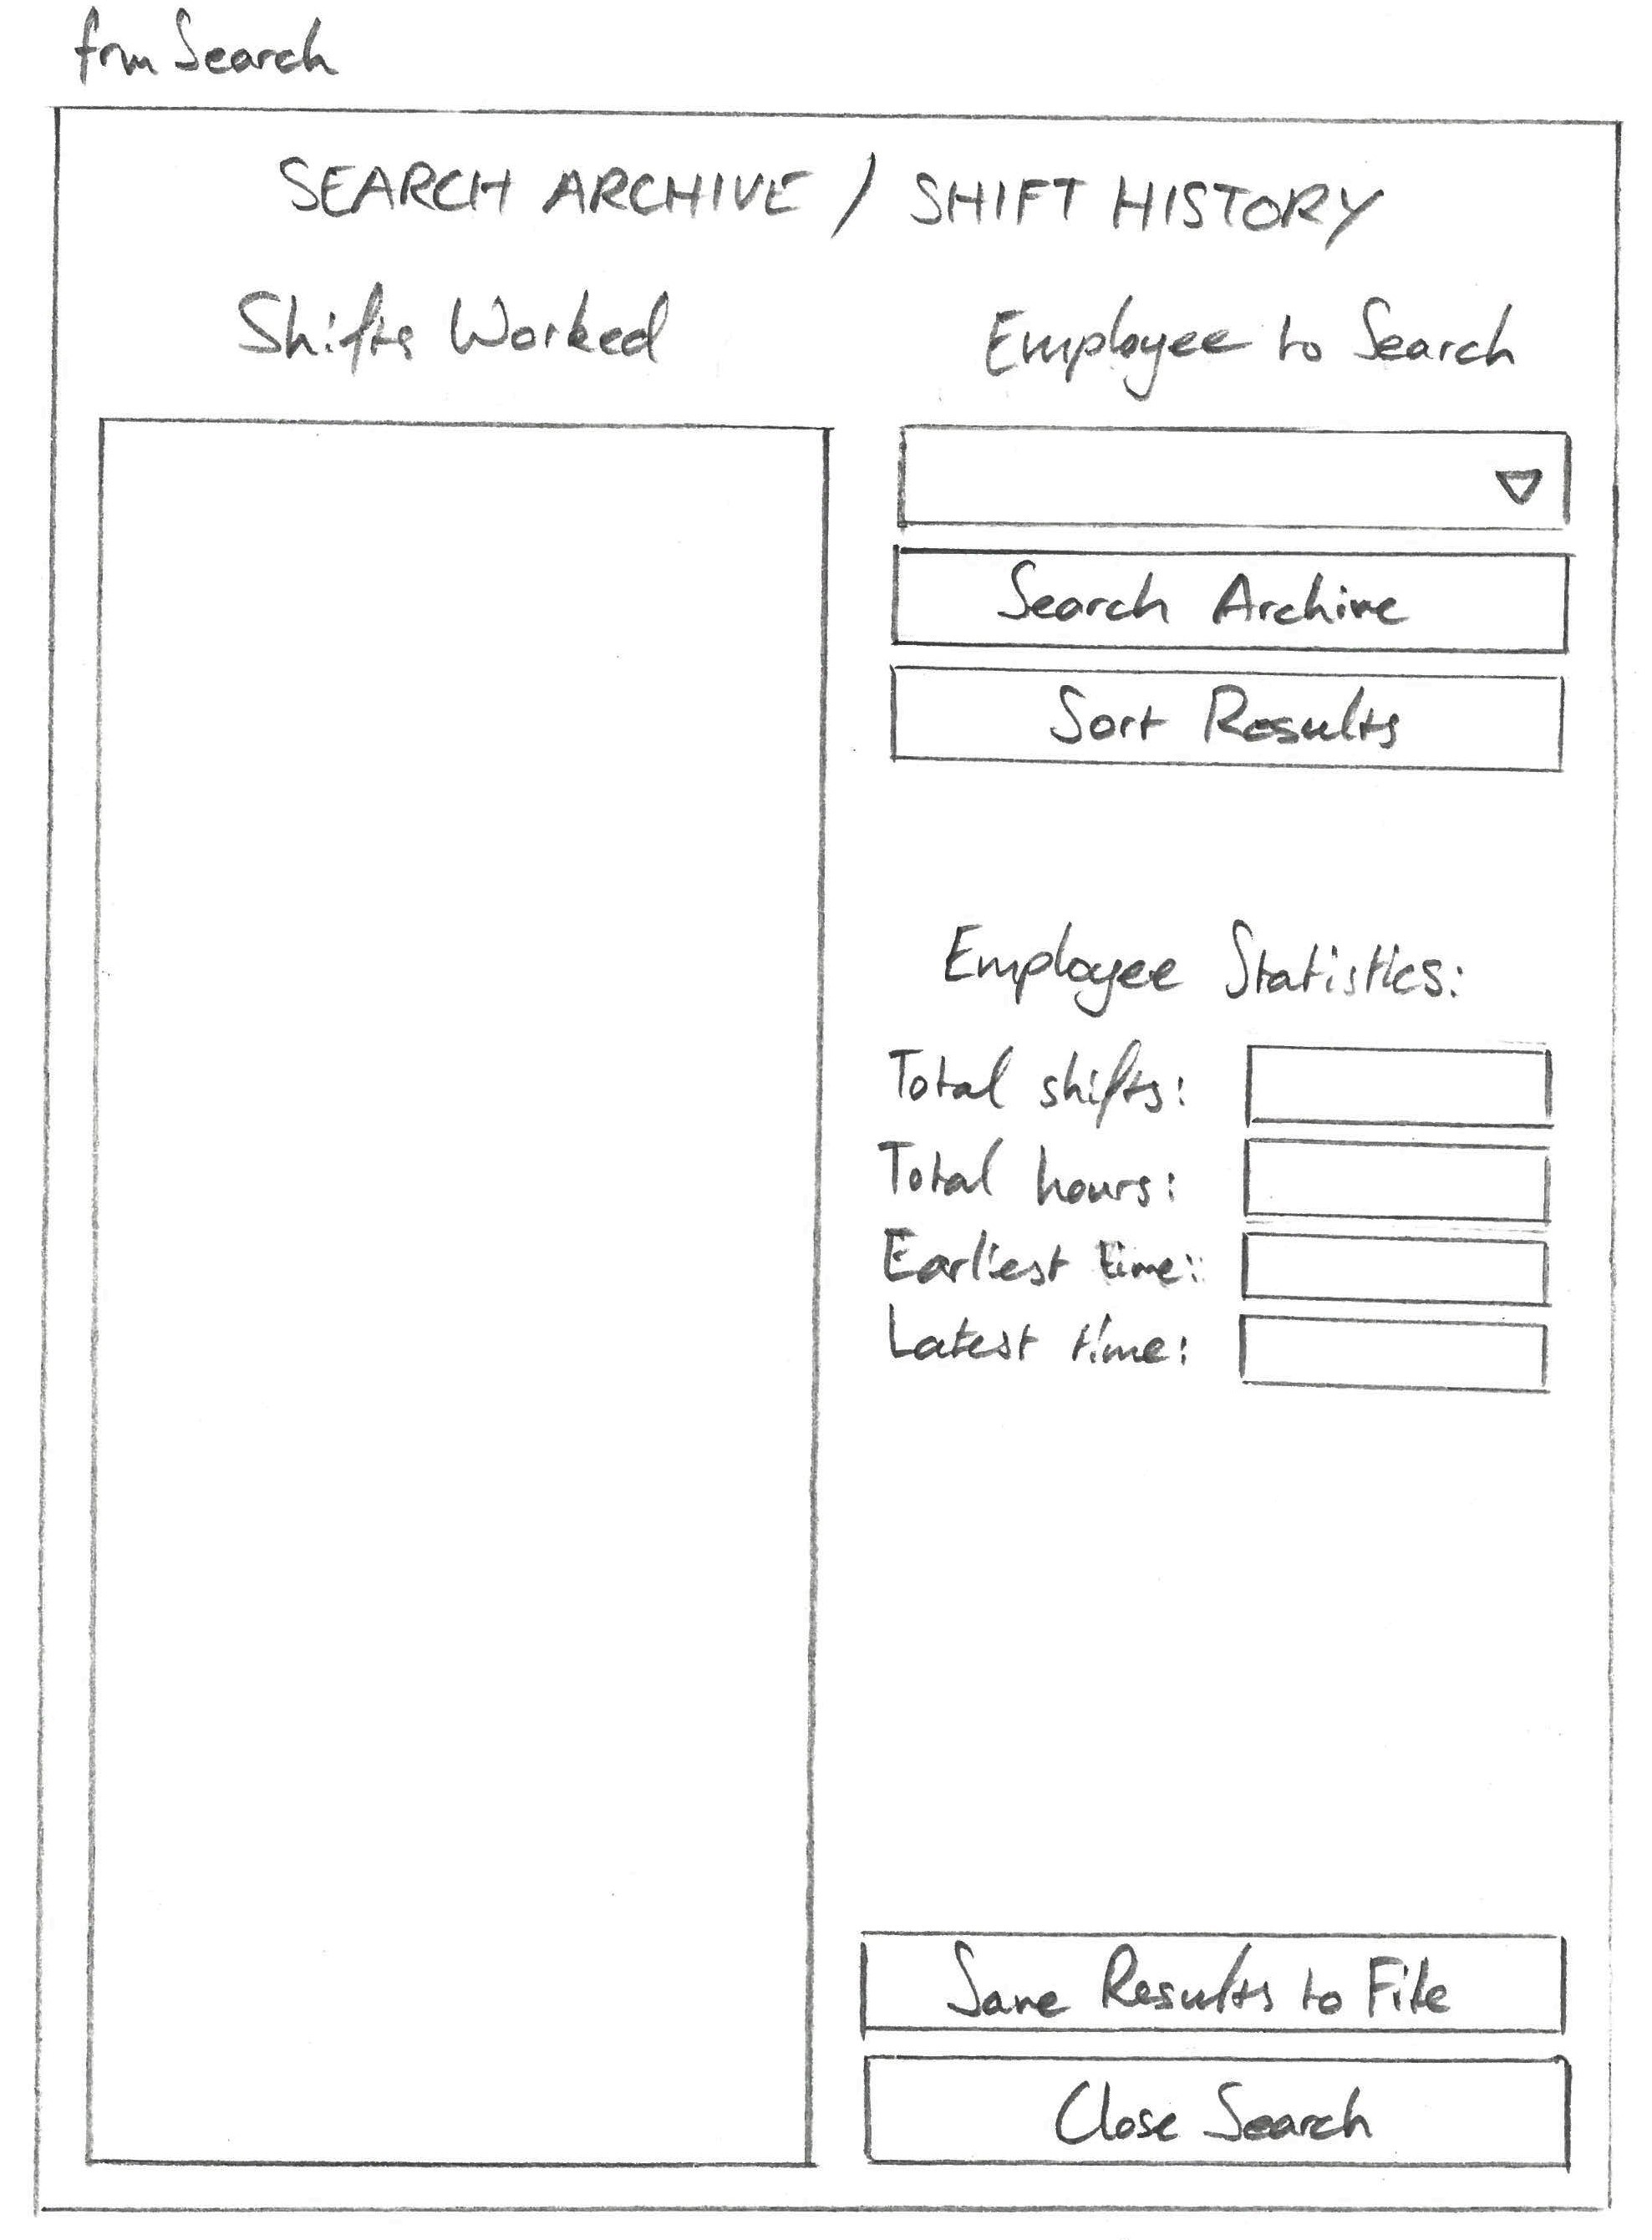 frm Search
SEARCH ARCHIVE / SHIFT HISTORY
Shifts Worked
Employee to Search
Search Archive
Sort Results
Employee Statistics:
Total shifts:
Total hours:
Earliest time:
Latest time:
Save Results to File
Close Search